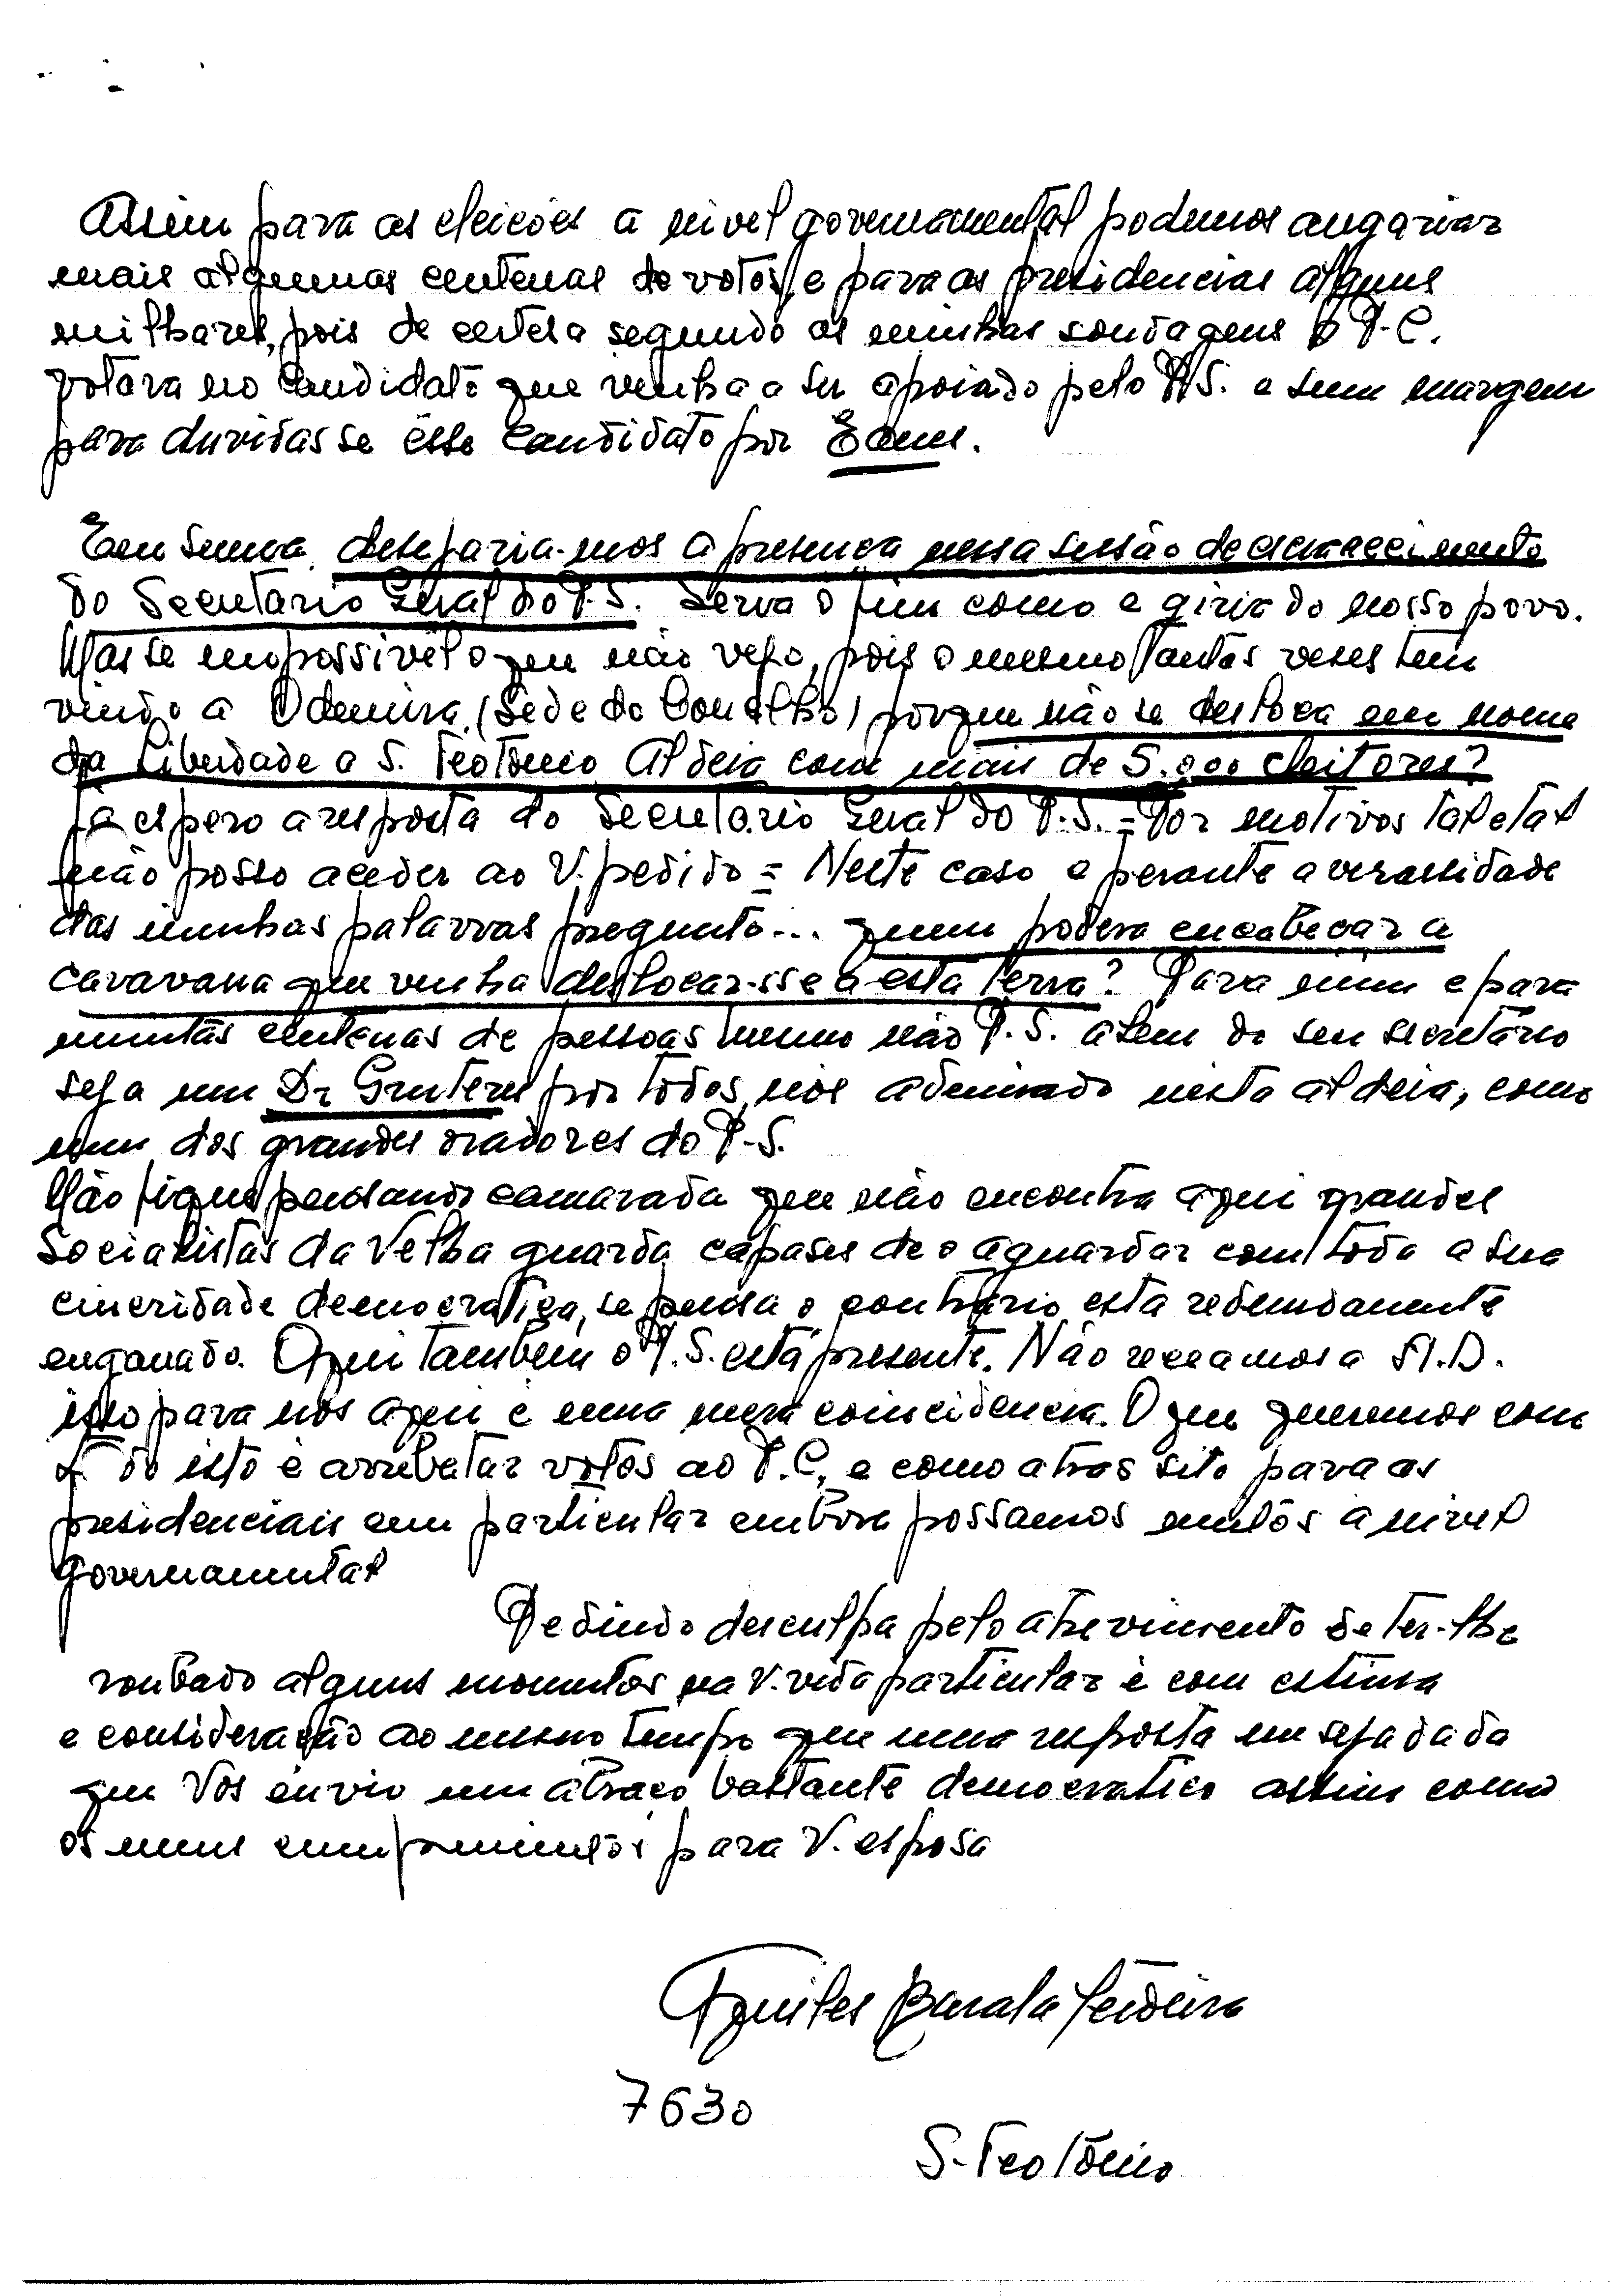 Assim para as eleicóes a nivel governamental podemos angariar
mais algumas centenas de votos, e para as presidencias alguns
milhares, pois de certesa segundo as minhas sondagens o P.C.
votara no Candidato que venha a ser apoiado pelo P.S. e sem margem
para duvidas se ésse Candidato for Eanes.
Em suma, desejaria-mos a presença nessa sessão de esclarecimento
do Secretário Geral do P.S. Seria o fim como a giria do nosso povo.
Mas se impossivel o que não vejo, pois o mesmo tantas veses tem
vindo a Odemira, (Sede do Concelho) porque não se desloca em nome
da Liberdade a S. Teotónio Aldeia com mais de 5.000 eleitores?
Já espero a resposta do Secretário Geral do P.S. = Por motivos tal e tal
não posso aceder ao V. pedido = Neste caso e perante a verassidade
das minhas palavras pregunto... quem podera encabeçar a
caravana que venha deslocar-sse a esta terra? Para mim e para
muitas centenas de pessoas mesmo não P.S. alem do seu secretário
seja um Dr por todos nós admirado nesta aldeia, como
um dos grandes oradores do P.S.
Não fique pensando camarada que não encontra aqui grandes
Socialistas da Velha guarda capases de o aguardar com toda a sua
cinceridade democratica, se pensa o contrário esta redondamente
enganado. Aqui também o P.S. está presente. Não receamos a A.D.
isso para nós aqui é uma mera coincidencia. O que queremos com
todo isto é arrebatar votos ao P.C, e como atras sito para as
presidenciais em particular embora possamos muitos a nivel
governamental
Pedindo desculpa pelo atrevimento de ter-lhe
roubado alguns momentos na V. vida particular é com estima
e consideração ao mesmo tempo que uma resposta me seja dada
que Vos envio um abraço bastante democratico assim como
os meus cumprimentos para V. esposa
7630
S. Teotónio